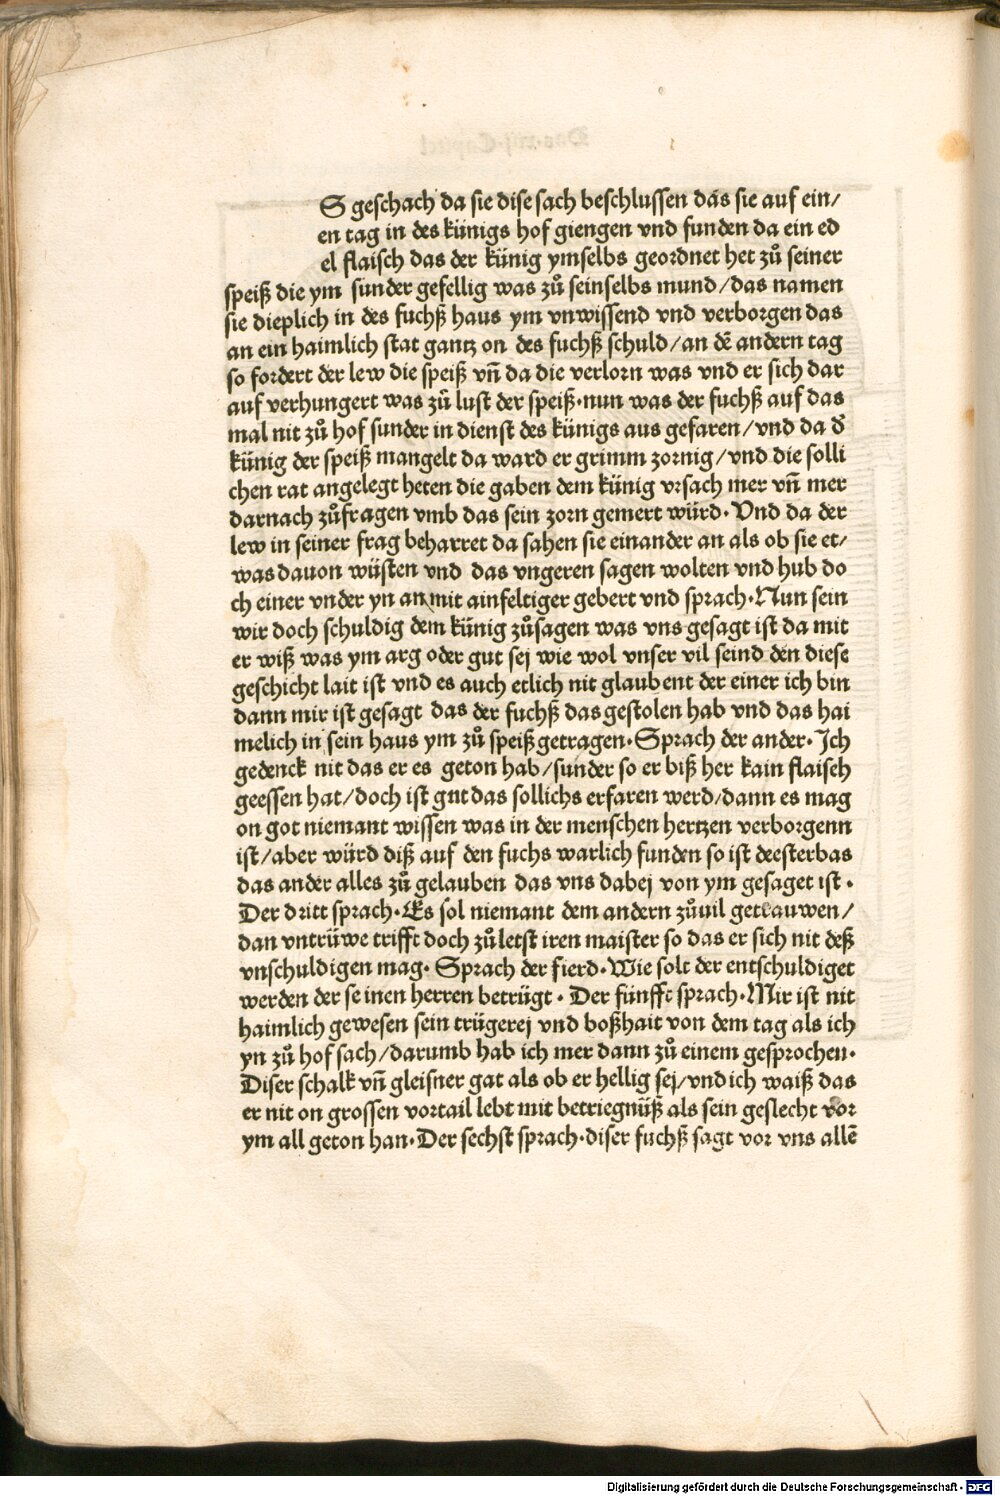 S geschach da sie dise sach beschlussen das sie auf ein/
en tag in des künigs hof giengen vnd funden da ein ed
el flaisch das der künig ymselbs geordnet het zuͦ seiner
speiß die ym sunder gefellig was zuͦ seinselbs mund/das namen
sie dieplich in des fuchß haus ym vnwissend vnd verborgen das
an ein haimlich stat gantz on des fuchß schuld/an dē andern tag
so fordert der lew die speiß vn̄ da die verlorn was vnd er sich dar
auf verhungert was zuͦ lust der speiß·nun was der fuchß auf das
mal nit zuͦ hof sunder in dienst des künigs aus gefaren/vnd da d̕
künig der speiß mangelt da ward er grimm zornig/vnd die solli
chen rat angelegt heten die gaben dem künig vrsach mer vn̄ mer
darnach zuͦfragen vmb das sein zorn gemert würd· Vnd da der
lew in seiner frag beharret da sahen sie einander an als ob sie et/
was dauon wüsten vnd das vngeren sagen wolten vnd hub do
ch einer vnder yn an mit ainfeltiger gebert vnd sprach·Nun sein
wir doch schuldig dem künig zuͦsagen was vns gesagt ist da mit
er wiß was ym arg oder gut sej wie wol vnser vil seind den diese
geschicht lait ist vnd es auch etlich nit glaubent der einer ich bin
dann mir ist gesagt das der fuchß das gestolen hab vnd das hai
melich in sein haus ym zuͦ speiß getragen·Sprach der ander·Ich
gedenck nit das er es geton hab/sunder so er biß her kain flaisch
geessen hat/doch ist gnt das sollichs erfaren werd/dann es mag
on got niemant wissen was in der menschen hertzen verborgenn
ist/aber würd diß auf den fuchs warlich funden so ist deesterbas
das ander alles zuͦ gelauben das vns dabej von ym gesaget ist·
Der dritt sprach·Es sol niemant dem andern zuͦuil getrauwen/
dan vntrüwe trifft doch zuͦletst iren maister so das er sich nit deß
vnschuldigen mag· Sprach der fierd·Wie solt der entschuldiget
werden der se inen herren betrügt· Der fünfft sprach·Mir ist nit
haimlich gewesen sein trügerej vnd boßhait von dem tag als ich
yn zuͦ hof sach/darumb hab ich mer dann zuͦ einem gesprochen·
Diser schalk vn̄ gleisner gat als ob er hellig sej/vnd ich waiß das
er nit on grossen vortail lebt mit betriegnüß als sein geslecht vor
ym all geton han·Der sechst sprach·diser fuchß sagt vor vns allē
Digitalisierung gefördert durch die Deutsche Forschungsgemeinschaft - DFG